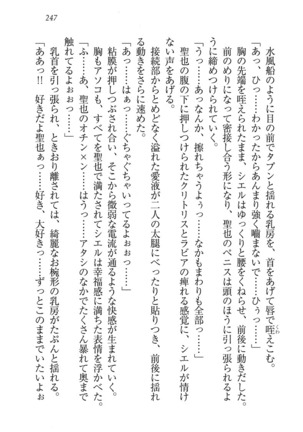 247
水風船のように目の前でタプンと揺れる乳房を、首をあげて唇で咥えこむ。
「あっ、ひっ……わかったからあんまり強く噛まないで……ひぅっ……」
胸の先端を咥えられながら、シエルはゆっくりと腰をくねらせ、前後に動きだした。
前のめりになって密接し合う形になり、聖也のペニスは頭のほうに引っ張られるように締めつけられていく。
「うっ……あっなんか、擦れちゃうよっ……なかもまわりも全部っ……」
聖也の腹の下に押しつけられたクリトリスとラビアの痺れる感覚に、シエルが情けない声をあげる。
接続部からとめどなく溢れた愛液が二人の太腿にべったりと貼りつき、前後に揺れる動きをさらに速めた。
「あっ……はぁっ……ぐちゃぐちゃいってるよぉっ……」
粘膜が押しつぶされ合い、そこから微弱な電流が通るような快感が生まれていく。
胸もアソコも、すべてを聖也で満たされてシエルは幸福感に満ちた表情を浮かべた。
「ふあっ……聖也のオチン×ン……はうっ……アタシのなかでたくさん暴れて奥まで触れてるのぉっ……」
乳首を引っ張られ、ときおり離されては、綺麗なお椀形の乳房がたぷんと揺れる。
「ああっ!! 好きだよ聖也ぁっ……好き、大好きっ……ずっとこのままでいたいよぉ